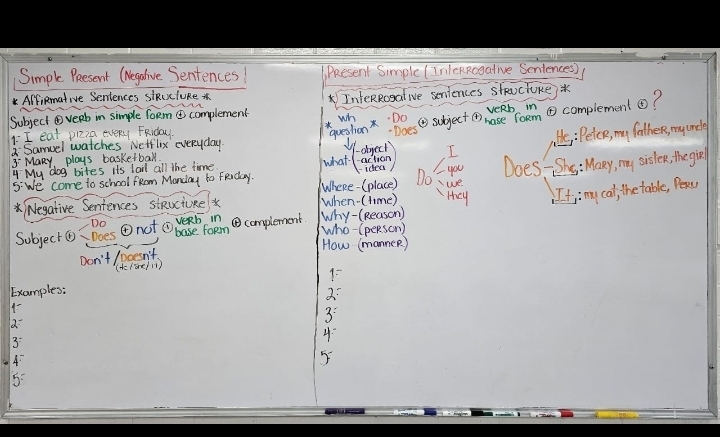 Simple Present (Negative Sentences)
* Affirmative Sentences structure *
Subject + verb in simple form + complement
1- I eat pizza every Friday.
2- Samuel watches Netflix everyday.
3- Mary plays basketball.
4- My dog bites its tail all the time
5- We come to school from Monday to Friday.
* Negative Sentences structure *
Subject + Do Does + not + verb in base form + complement.
Don't / Doesn't
(He/she/it)
Examples:
1-
2-
3-
4-
5-
Present Simple (Interrogative Sentences)
* Interrogative sentences structure *
* Wh question *
- Do
- Does
+ subject + verb in base form + complement + ?
What
- object
- action
- idea
Where - (place)
When - (time)
Why - (reason)
Who - (person)
How - (manner)
Do
I
you
we
they
Does
He: Peter, my father, my uncle
She: Mary, my sister, the girl
It: my cat, the table, Peru
1-
2-
3-
4-
5-